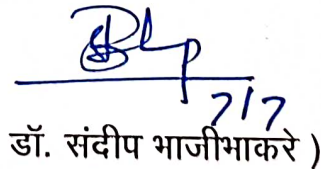 7/7
डॉ. संदीप भाजीभाकरे )